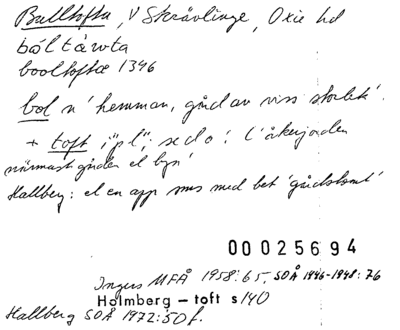 Bulltofta, V Skrävlinge, Oxie hd
båltåwta
booltoftæ 1346
bol n' hemman, gård av viss storlek'.
+ toft i "pl"; se d o: (' åkerjorden
närmast gården el byn'
Hallberg: el en app sms med bet 'gårdstomt'
00025694
Ingers MFÅ 1958:65, SOÅ 1946-1948:76
Holmberg – toft s 140
Hallberg SOÅ 1972:50 f.